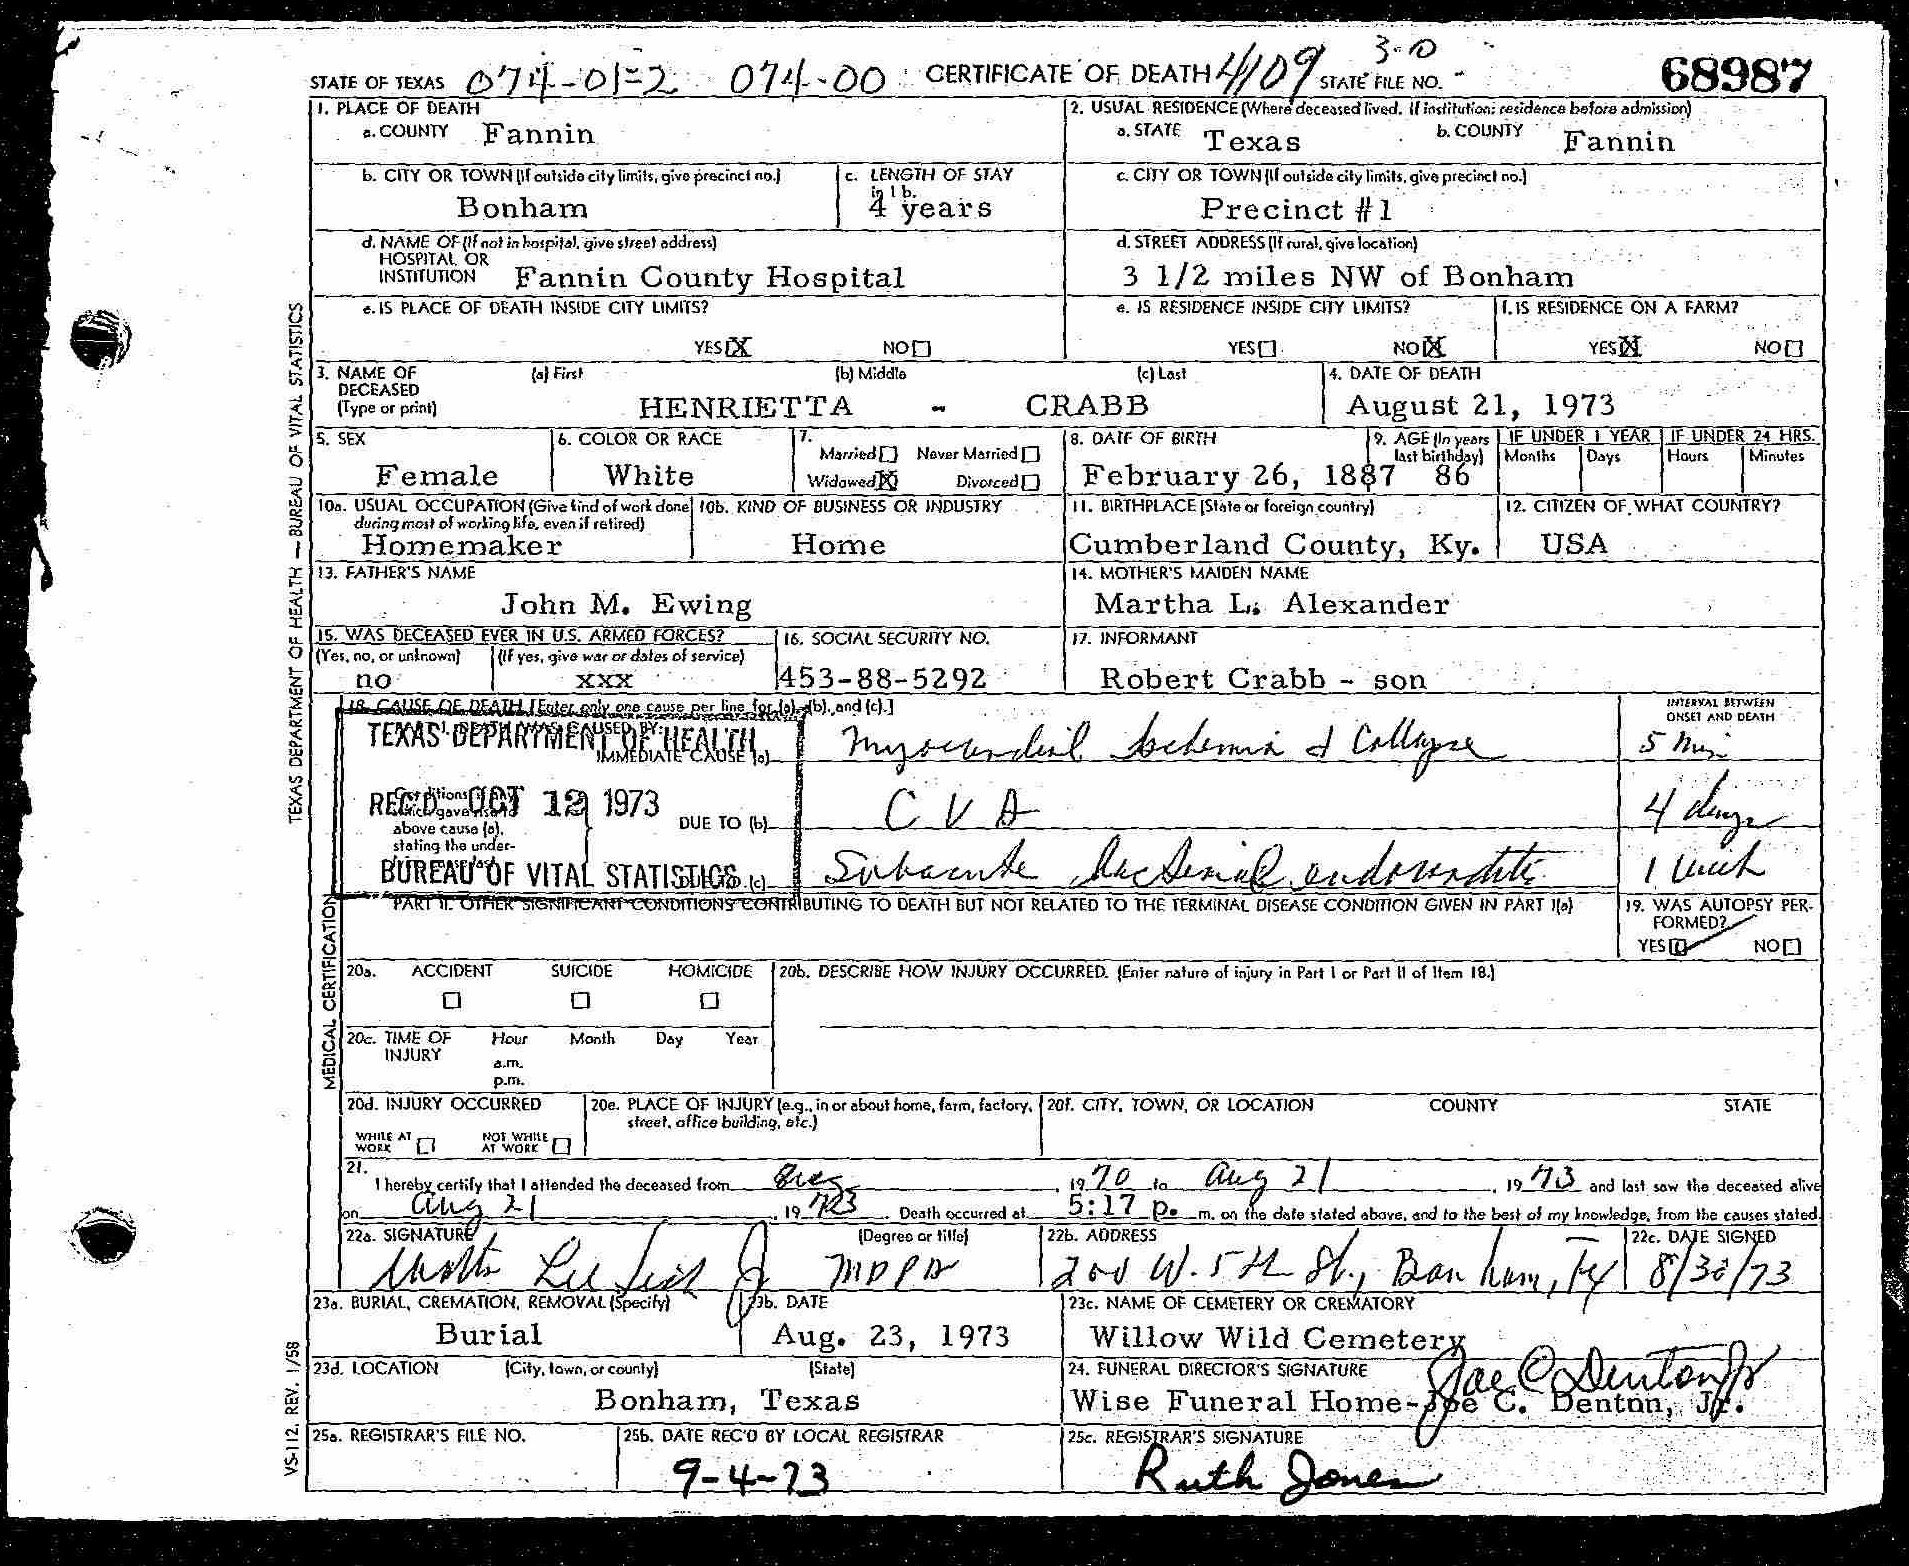 STATE OF TEXAS 074-01-2 074-00 CERTIFICATE OF DEATH 4109 STATE FILE NO. 3-0 68987
1. PLACE OF DEATH
a. COUNTY Fannin
2. USUAL RESIDENCE (Where deceased lived. If institution: residence before admission)
a. STATE Texas b. COUNTY Fannin
b. CITY OR TOWN (If outside city limits, give precinct no.)
Bonham
c. LENGTH OF STAY in 1b.
4 years
c. CITY OR TOWN (If outside city limits, give precinct no.)
Precinct #1
d. NAME OF (If not in hospital, give street address)
HOSPITAL OR
INSTITUTION Fannin County Hospital
d. STREET ADDRESS (If rural, give location)
3 1/2 miles NW of Bonham
e. IS PLACE OF DEATH INSIDE CITY LIMITS?
YES X NO
e. IS RESIDENCE INSIDE CITY LIMITS?
YES NO X
f. IS RESIDENCE ON A FARM?
YES X NO
3. NAME OF DECEASED (Type or print)
(a) First (b) Middle (c) Last
HENRIETTA - CRABB
4. DATE OF DEATH
August 21, 1973
5. SEX
Female
6. COLOR OR RACE
White
7.
Married Never Married
Widowed X Divorced
8. DATE OF BIRTH
February 26, 1887
9. AGE (In years last birthday)
86
IF UNDER 1 YEAR
Months Days
IF UNDER 24 HRS.
Hours Minutes
10a. USUAL OCCUPATION (Give kind of work done during most of working life, even if retired)
Homemaker
10b. KIND OF BUSINESS OR INDUSTRY
Home
11. BIRTHPLACE (State or foreign country)
Cumberland County, Ky.
12. CITIZEN OF WHAT COUNTRY?
USA
13. FATHER'S NAME
John M. Ewing
14. MOTHER'S MAIDEN NAME
Martha L. Alexander
15. WAS DECEASED EVER IN U.S. ARMED FORCES?
(Yes, no, or unknown) (If yes, give war or dates of service)
no xxx
16. SOCIAL SECURITY NO.
453-88-5292
17. INFORMANT
Robert Crabb - son
18. CAUSE OF DEATH [Enter only one cause per line for (a), (b), and (c).]
INTERVAL BETWEEN ONSET AND DEATH
TEXAS DEPARTMENT OF HEALTH
REC'D OCT 12 1973
BUREAU OF VITAL STATISTICS
DEATH WAS CAUSED BY:
IMMEDIATE CAUSE (a) Myocardial Ischemia & Collapse 5 Min
Conditions
which gave rise to
above cause (a),
stating the under-
DUE TO (b) C V A 4 days
(c) Subacute bacterial endocarditis 1 Week
PART II. OTHER SIGNIFICANT CONDITIONS CONTRIBUTING TO DEATH BUT NOT RELATED TO THE TERMINAL DISEASE CONDITION GIVEN IN PART I(a)
19. WAS AUTOPSY PERFORMED?
YES NO
20a. ACCIDENT SUICIDE HOMICIDE
20b. DESCRIBE HOW INJURY OCCURRED. (Enter nature of injury in Part I or Part II of Item 18.)
20c. TIME OF INJURY
Hour Month Day Year
a.m.
p.m.
20d. INJURY OCCURRED
WHILE AT WORK NOT WHILE AT WORK
20e. PLACE OF INJURY (e.g., in or about home, farm, factory, street, office building, etc.)
20f. CITY, TOWN, OR LOCATION COUNTY STATE
21.
I hereby certify that I attended the deceased from 1970 to Aug 21, 1973 and last saw the deceased alive
on Aug 21, 1973. Death occurred at 5:17 p. m. on the date stated above, and to the best of my knowledge, from the causes stated.
22a. SIGNATURE (Degree or title)
Lee Jr MD
22b. ADDRESS
200 W. 5th St., Bonham, Tx
22c. DATE SIGNED
8/30/73
23a. BURIAL, CREMATION, REMOVAL (Specify)
Burial
23b. DATE
Aug. 23, 1973
23c. NAME OF CEMETERY OR CREMATORY
Willow Wild Cemetery
23d. LOCATION (City, town, or county) (State)
Bonham, Texas
24. FUNERAL DIRECTOR'S SIGNATURE
Joe C Denton Jr
Wise Funeral Home-Joe C. Denton, Jr.
25a. REGISTRAR'S FILE NO.
25b. DATE REC'D BY LOCAL REGISTRAR
9-4-73
25c. REGISTRAR'S SIGNATURE
Ruth Jones
TEXAS DEPARTMENT OF HEALTH — BUREAU OF VITAL STATISTICS
MEDICAL CERTIFICATION
VS-112, REV. 1/58